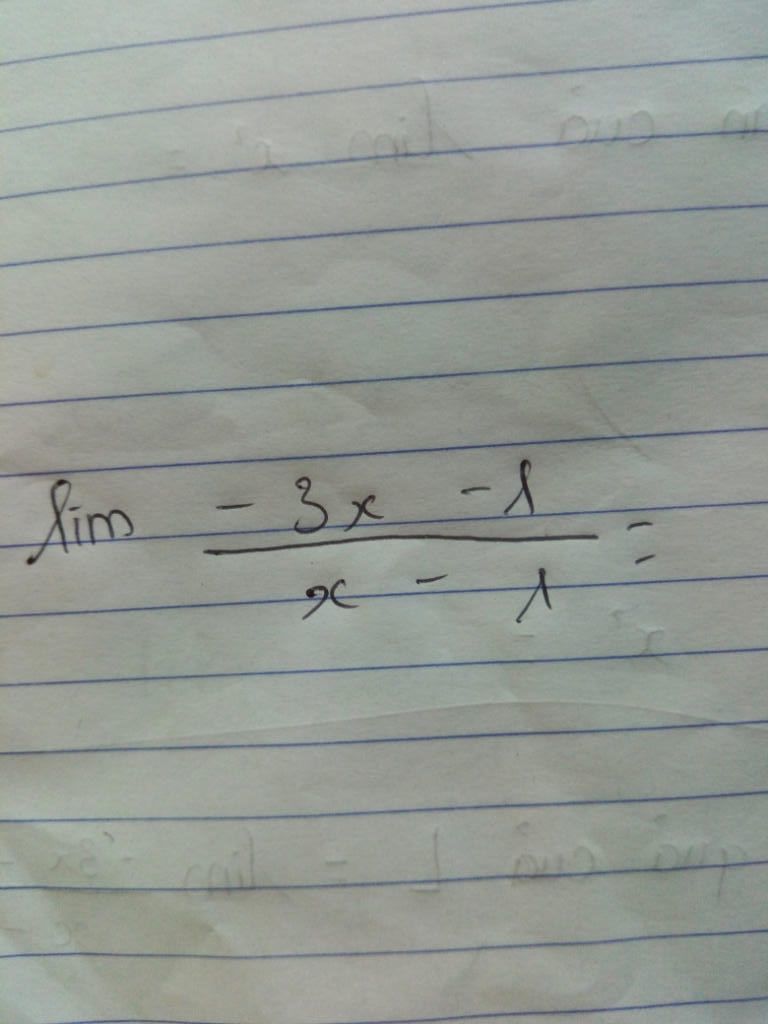 lim -3x -1 =
x - 1